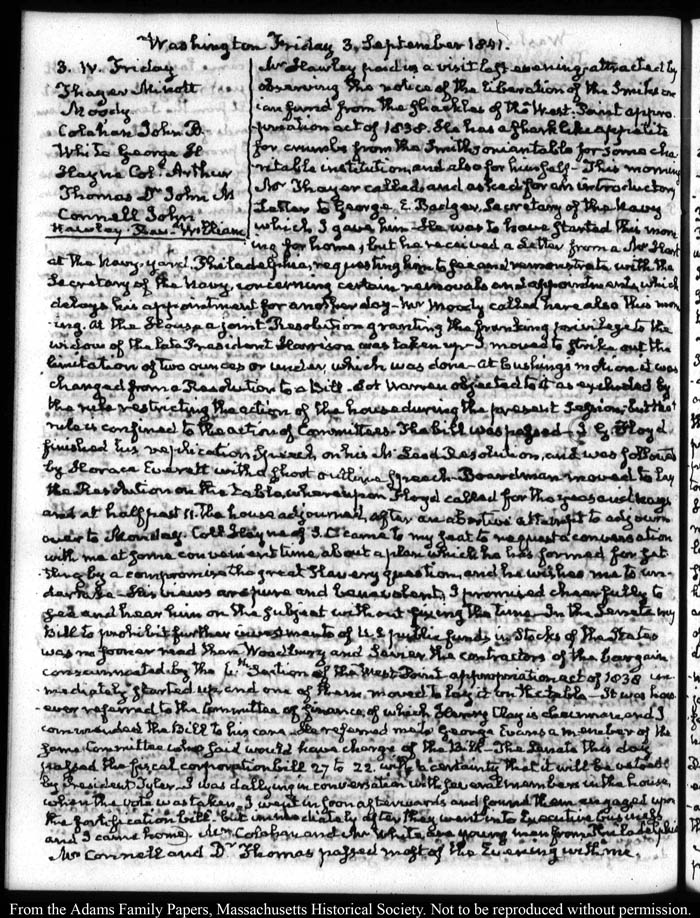 Washington Friday 3. September 1841.
3. IV. Friday
Thayer Minott
Moody
Colahan John B.
White George H
Hayne Col. Arthur
Thomas Dr John M
Connell John
Hawley Rev. William
Mr Hawley paid us a visit last evening, attracted by
observing the notice of the liberation of the Smithson
ian fund from the shackles of the West-Point appro
priation act of 1838. He has a shark like appetite
for crumbs from the Smithsonian table for some cha
ritable institution, and also for himself— This morning
Mr Thayer called, and asked for an introductory
Letter to George E. Badger, Secretary of the Navy
which I gave him— He was to have started this morn
ing for home, but he received a Letter from a Mr Hart
at the Navy-yard Philadelphia, requesting him to see and remonstrate with the
Secretary of the Navy, concerning certain removals and appointments, which
delays his appointment for another day— Mr Moody called here also this mor
ning. At the House a joint Resolution granting the franking privilege to the
widow of the late President Harrison was taken up— I moved to strike out the
limitation of two ounces or under, which was done— At Cushing's motion it was
changed from a Resolution to a Bill. Lott Warren objected to it as excluded by
the rule restricting the action of the house during the present Session, but that
rule is confined to the action of Committees. The bill was passed— J G. Floyd
finished his replication Speech, on his McLeod Resolution, and was followed
by Horace Everett with a short speech— Boardman moved to lay
the Resolution on the table, whereupon Floyd called for the yeas and nays
and at half past the house adjourned, after an abortive attempt to adjourn
over to Monday. Coll Hayne of S.C came to my seat to request a conversation
with me at some convenient time about a plan which he has formed for set
tling by a compromise the great Slavery question, and he wishes me to un
dertake— His views are pure and benevolent, I promised cheerfully to
see and hear him on the subject without fixing the time— In the Senate my
Bill to prohibit further investments of U.S public funds in Stocks of the States
was no sooner read than Woodbury and Sevier the contractors of the bargain
consummated by the 6th Section of the West Point appropriation act of 1838 im
mediately started up and one of them moved to lay it on the table— It was how
ever referred to the Committee of Finance, of which Henry Clay is chairman, and I
commended the Bill to his care. He referred me to George Evans a member of the
same Committee who he said would have charge of the Bill— The Senate this day
passed the fiscal corporation bill 27 to 22. with a certainty that it will be vetoed
by President Tyler— I was dallying in conversation with several members in the house,
when the vote was taken, I went in soon afterwards and found them engaged upon
the fortification bill, but immediately after they went into Executive business
and I came home. Mr Colahan and Mr White, two young men from Philadelphia
Mr Connell and Dr Thomas passed most of the Evening with me.
From the Adams Family Papers, Massachusetts Historical Society. Not to be reproduced without permission.